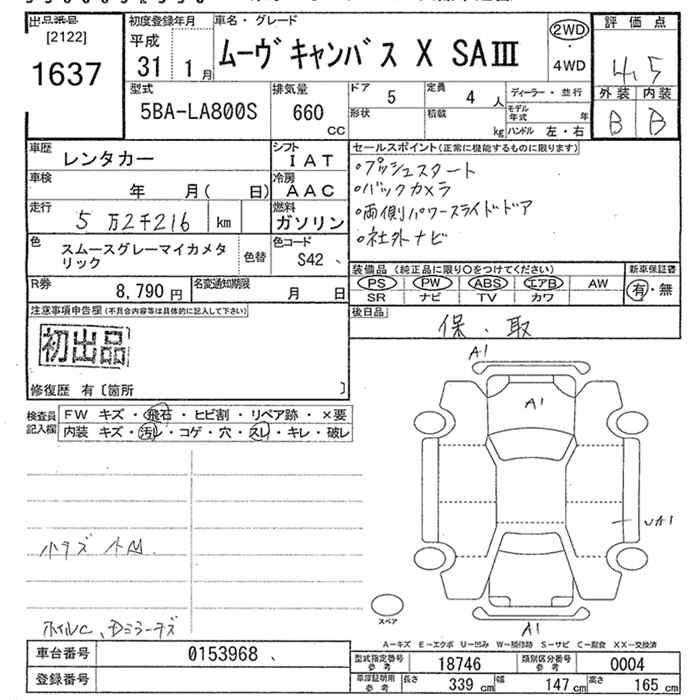 出品番号
[2122]
1637
初度登録年月
平成
31 1月
車名・グレード
ムーヴキャンバス X SAⅢ
2WD
・
4WD
評価点
4.5
外装 内装
B B
型式
5BA-LA800S
排気量
660
CC
ドア 5
定員 4人
形状
積載 kg
ディーラー・並行
モデル年式 年
ハンドル 左・右
車歴
レンタカー
シフト
IAT
車検
年 月( 日)
冷房
AAC
走行
5万2千216 km
燃料
ガソリン
色
スムースグレーマイカメタ
リック
色替
色コード
S42
R券
8,790 円
名変通知期限
月 日
セールスポイント(正常に機能するものに限ります)
・プッシュスタート
・バックカメラ
・両側パワースライドドア
・社外ナビ
装備品 (純正品に限り○をつけてください)
PS PW ABS エアB AW
SR ナビ TV カワ
新車保証書
有・無
後日品
保・取
注意事項申告欄(不具合内容等は具体的に記入して下さい)
初出品
修復歴 有〔箇所 〕
検査員
記入欄
FW キズ・飛石・ヒビ割・リペア跡・×要
内装 キズ・汚レ・コゲ・穴・スレ・キレ・破レ
小キズ 小凹
ホイルC、Dミラーキズ
A1
A1
A1
スペア
A1
A-キズ E-エクボ U-凹み W-補修跡 S-サビ C-腐食 XX-交換済
車台番号
0153968
登録番号
型式指定番号
参考
18746
類別区分番号
参考
0004
車庫証明用
参考
長さ 339 cm
幅 147 cm
高さ 165 cm